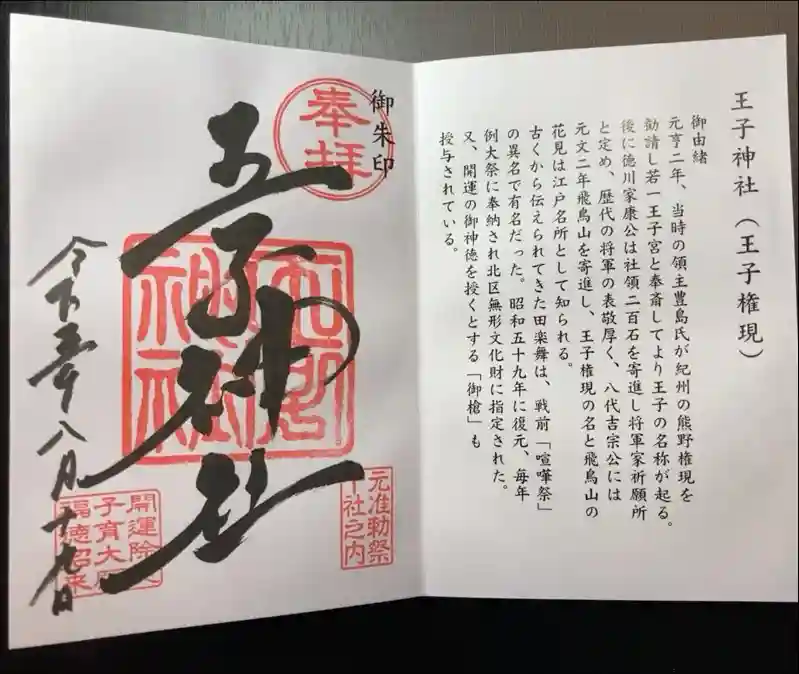 王子神社（王子権現）
御由緒
元亨二年、当時の領主豊島氏が紀州の熊野権現を
勧請し若一王子宮と奉斎してより王子の名称が起る。
後に徳川家康公は社領二百石を寄進し将軍家祈願所
と定め、歴代の将軍の表敬厚く、八代吉宗公には
元文二年飛鳥山を寄進し、王子権現の名と飛鳥山の
花見は江戸名所として知られる。
古くから伝えられてきた田楽舞は、戦前「喧嘩祭」
の異名で有名だった。昭和五十九年に復元、毎年
例大祭に奉納され北区無形文化財に指定された。
又、開運の御神徳を授くとする「御槍」も
授与されている。
御朱印
奉拝
王子神社
元准勅祭
十社之内
令和五年八月十九日
開運除
子育大
福徳招来